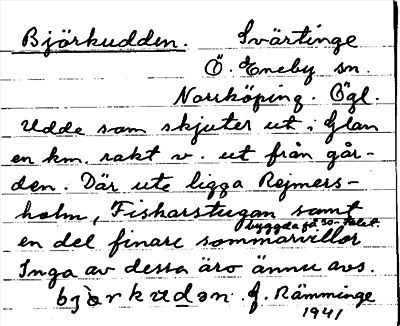 Björkudden. Svärtinge
Ö. Eneby sn.
Norrköping. Ögl.
Udde som skjuter ut i Glan
en km. rakt v. ut från går-
den. Där ute ligga Rejmers-
holm, Fiskarstugan samt
byggda på 30-talet.
en del finare sommarvillor
Inga av dessa äro ännu avs.
björkudən. J. Rämminge
1941